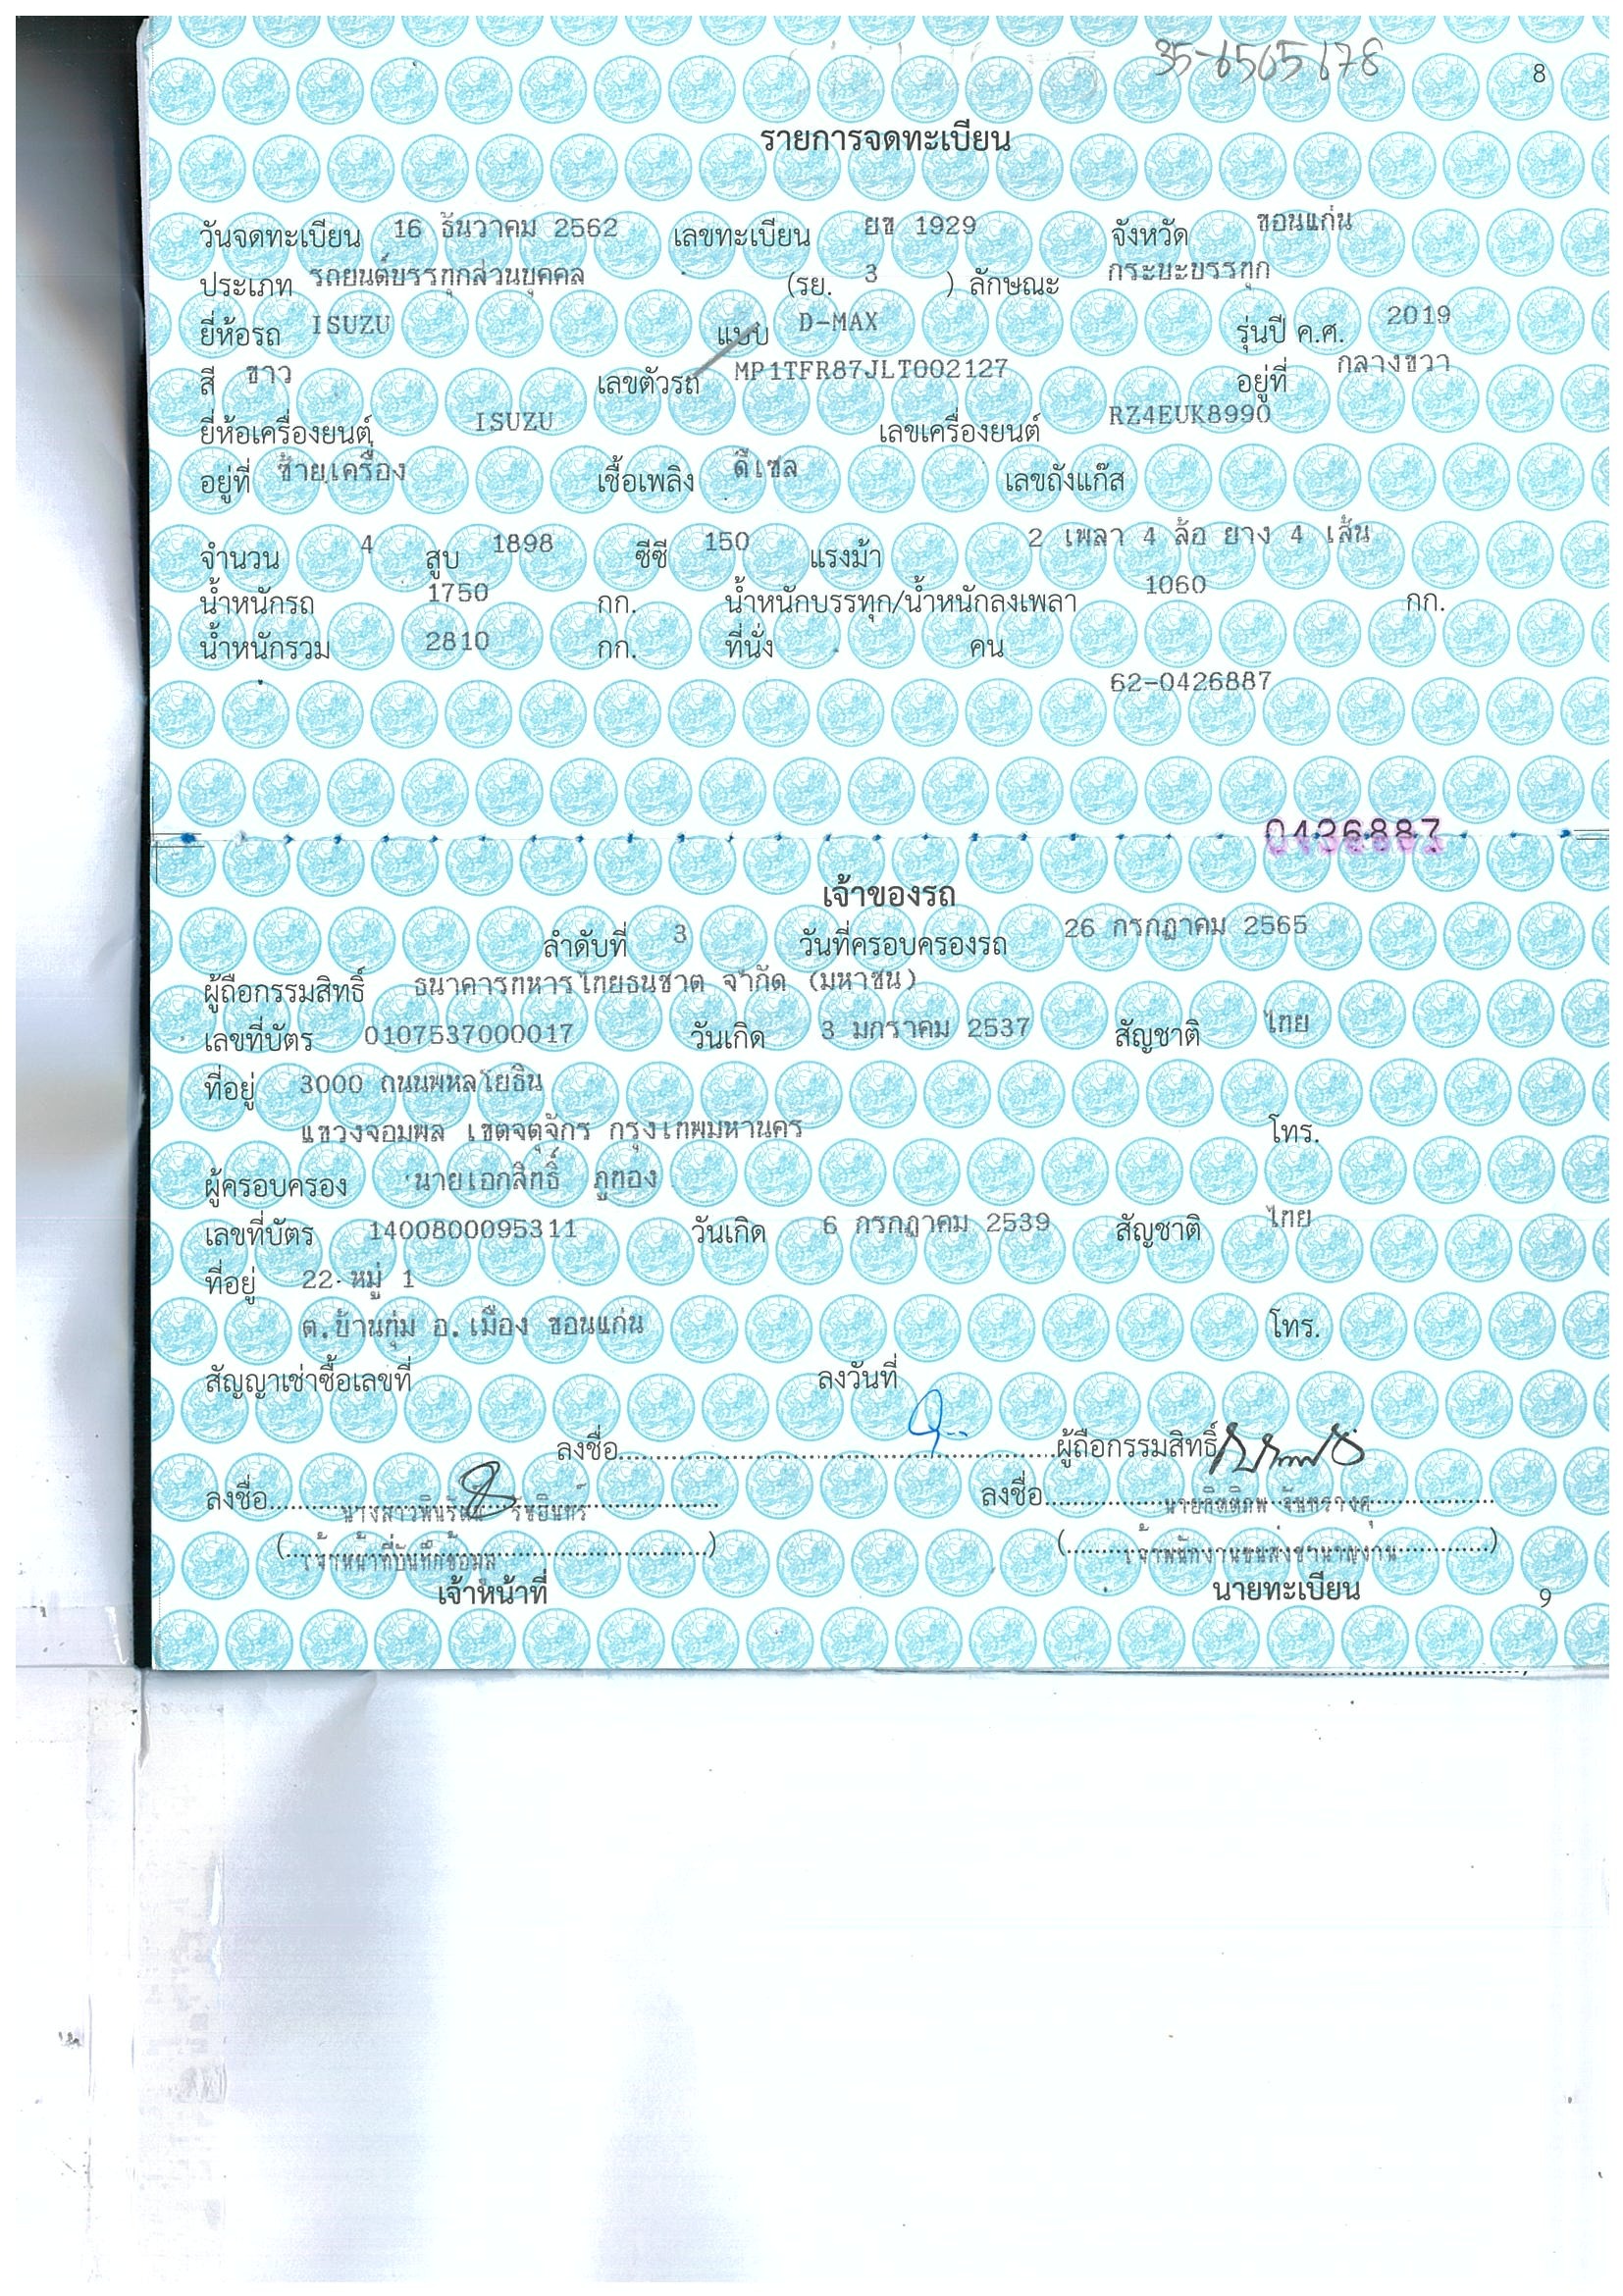 35-6505678
8
รายการจดทะเบียน
วันจดทะเบียน 16 ธันวาคม 2562 เลขทะเบียน ยข 1929 จังหวัด ขอนแก่น
ประเภท รถยนต์บรรทุกส่วนบุคคล (รย. 3 ) ลักษณะ กระบะบรรทุก
ยี่ห้อรถ ISUZU แบบ D-MAX รุ่นปี ค.ศ. 2019
สี ขาว เลขตัวรถ MP1TFR87JLT002127 อยู่ที่ กลางขวา
ยี่ห้อเครื่องยนต์ ISUZU เลขเครื่องยนต์ RZ4EUK8990
อยู่ที่ ซ้ายเครื่อง เชื้อเพลิง ดีเซล เลขถังแก๊ส
จำนวน 4 สูบ 1898 ซีซี 150 แรงม้า 2 เพลา 4 ล้อ ยาง 4 เส้น
น้ำหนักรถ 1750 กก. น้ำหนักบรรทุก/น้ำหนักลงเพลา 1060 กก.
น้ำหนักรวม 2810 กก. ที่นั่ง คน
62-0426887
เจ้าของรถ
ลำดับที่ 3 วันที่ครอบครองรถ 26 กรกฎาคม 2565
ผู้ถือกรรมสิทธิ์ ธนาคารทหารไทยธนชาต จำกัด (มหาชน)
เลขที่บัตร 0107537000017 วันเกิด 3 มกราคม 2537 สัญชาติ ไทย
ที่อยู่ 3000 ถนนพหลโยธิน
แขวงจอมพล เขตจตุจักร กรุงเทพมหานคร โทร.
ผู้ครอบครอง นายเอกสิทธิ์ ภูทอง
เลขที่บัตร 1400800095311 วันเกิด 6 กรกฎาคม 2539 สัญชาติ ไทย
ที่อยู่ 22 หมู่ 1
ต.บ้านทุ่ม อ.เมือง ขอนแก่น โทร.
สัญญาเช่าซื้อเลขที่ ลงวันที่
ลงชื่อ ผู้ถือกรรมสิทธิ์
ลงชื่อ ลงชื่อ
เจ้าหน้าที่บันทึกข้อมูล เจ้าพนักงานขนส่งชำนาญงาน
เจ้าหน้าที่ นายทะเบียน
9